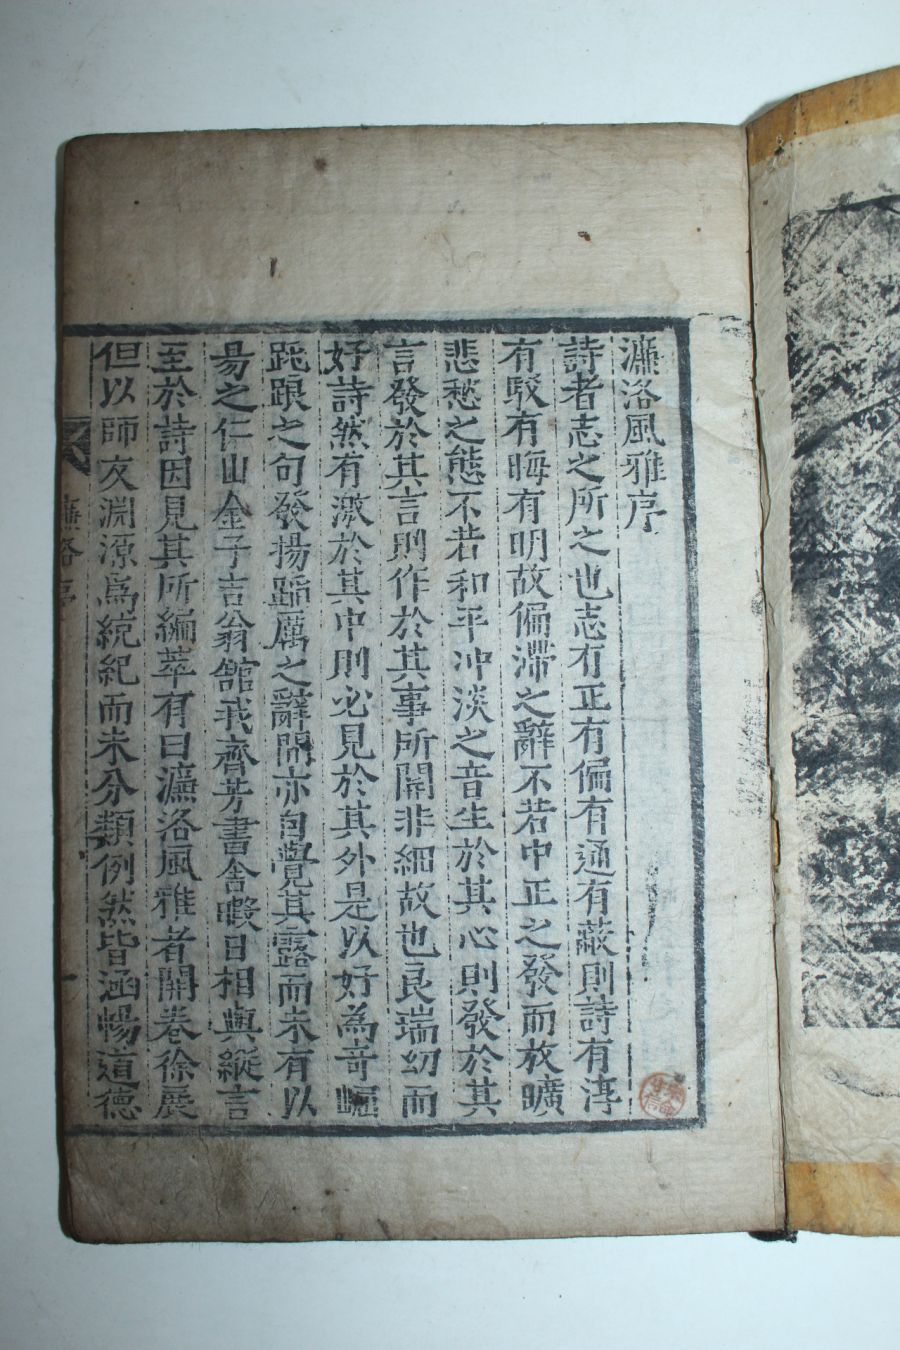 濂洛風雅序
詩者志之所之也志有正有偏有通有蔽則詩有淳
有駁有晦有明故偏滯之辭不若中正之發而放曠
悲愁之態不若和平冲淡之音生於其心則發於其
言發於其言則作於其事所關非細故也良瑞幼而
好詩然有激於其中則必見於其外是以好為奇崛
跪踉之句發揚蹈厲之辭間亦自覺其露而未有以
易之仁山金子吉翁館我齊芳書舍暇日相與縱言
至於詩因見其所編萃有曰濂洛風雅者開卷徐展
但以師友淵源為統紀而未分類例然皆涵暢道德
濂洛序
一